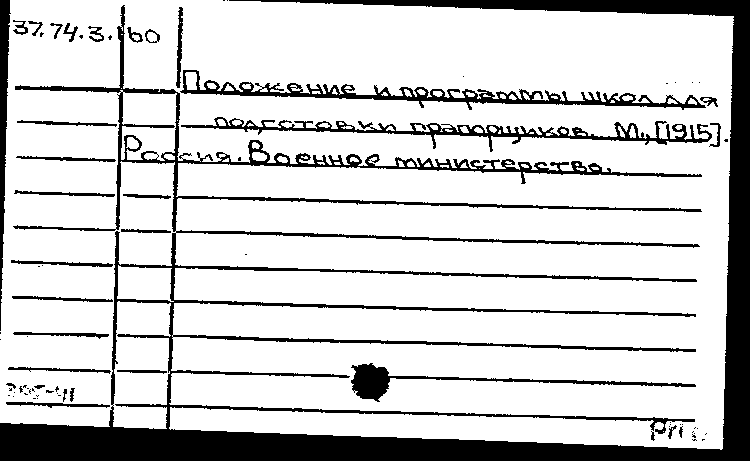 37.74.3.160
Положение и программы школ для
подготовки прапорщиков. М., [1915].
Россия. Военное министерство.